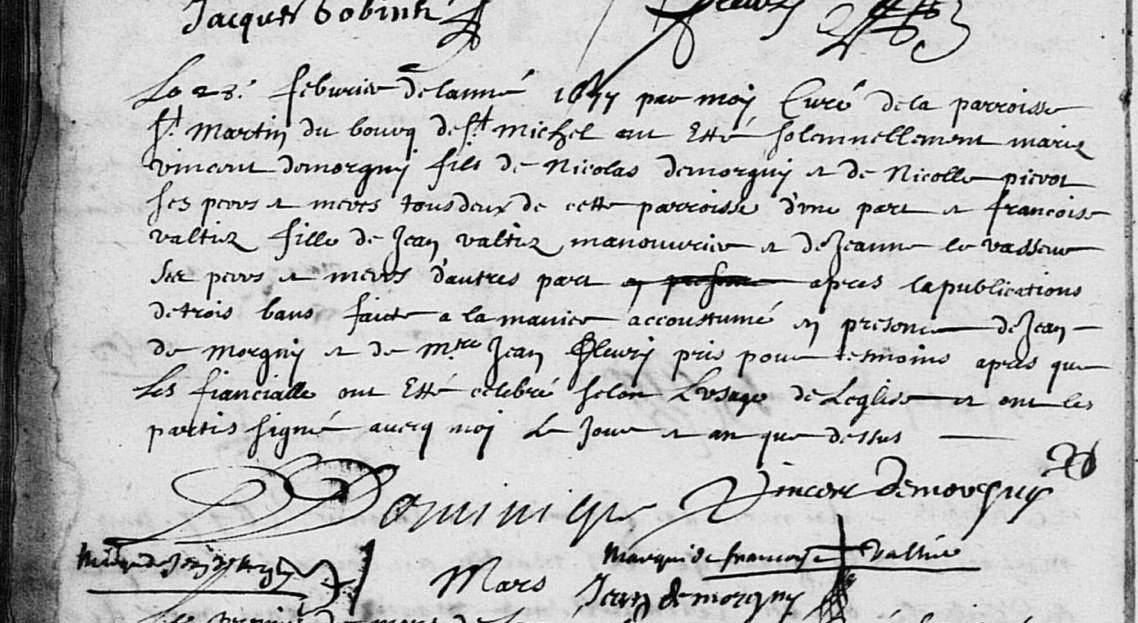 Jacques Gobinet
Le 28e feburier de lanné 1677 par moy Curé de la parroisse
St Martin du bourg de St Michel ont Etté solemnellement mariez
vincent demorgny fils de Nicolas demorgny et de Nicolle pierot
ses peres et meres tous deux de cette parroisse d'une part et francoise
valtiez fille de Jean valtiez manouvrier et de Jeanne le vasseur
ses peres et meres d'autres part apres la publications
de trois bans faicte a la maniere accoustumé en presence de Jean
de morgny et de Mtre Jean fleury pris pour tesmoins apres que
les fiancialle ont Etté celebré selon Lusage de Leglise et ont les
partis signé avecq moy Le Jour et an que dessus
Dominique Vincent Demorgny
Marque de francoise Valtier
Mars Jean demorgny